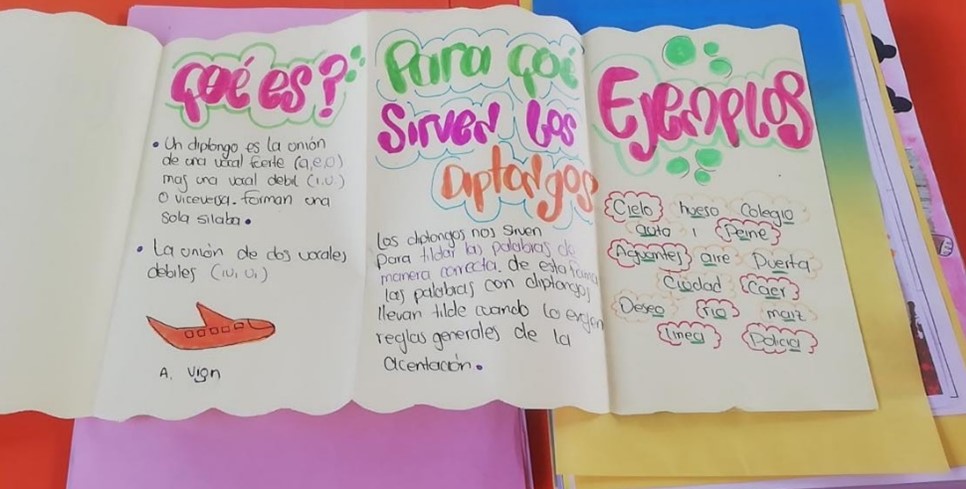 Qué es?
• Un diptongo es la unión
de una vocal fuerte (a,e,o)
mas una vocal debil (i,u.)
o viceversa. forman una
sola silaba.
• La unión de dos vocales
debiles (iu, ui)
A. vión
Para qué
Sirven los
Diptongos
Los diptongos nos sirven
Para tildar las palabras de
manera correcta. de esta forma
las palabras con diptongos
llevan tilde cuando lo exigen
reglas generales de la
acentación.
Ejemplos
Cielo hueso Colegio
auto Peine
Aguantes aire Puerta
Ciudad Caer
Deseo rio maiz
linea Policia